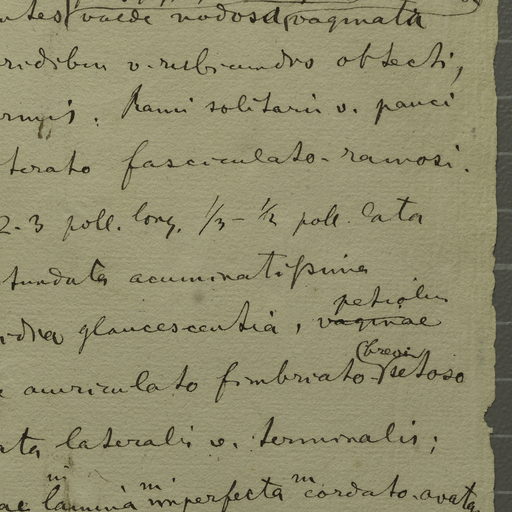 ntes valde nodosa, vaginata
viridibus v. rubicundis obtecti,
ormis. Rami solitarii v. pauci
terato fasciculato-ramosi.
2-3 poll. long. 1/3-1/2 poll. lata
tundata acuminatissima
glaucescentia, vaginae petiolus
auriculato fimbriato-(brevi) setoso
ata lateralis v. terminalis;
ae lamina imperfecta cordato-ovata